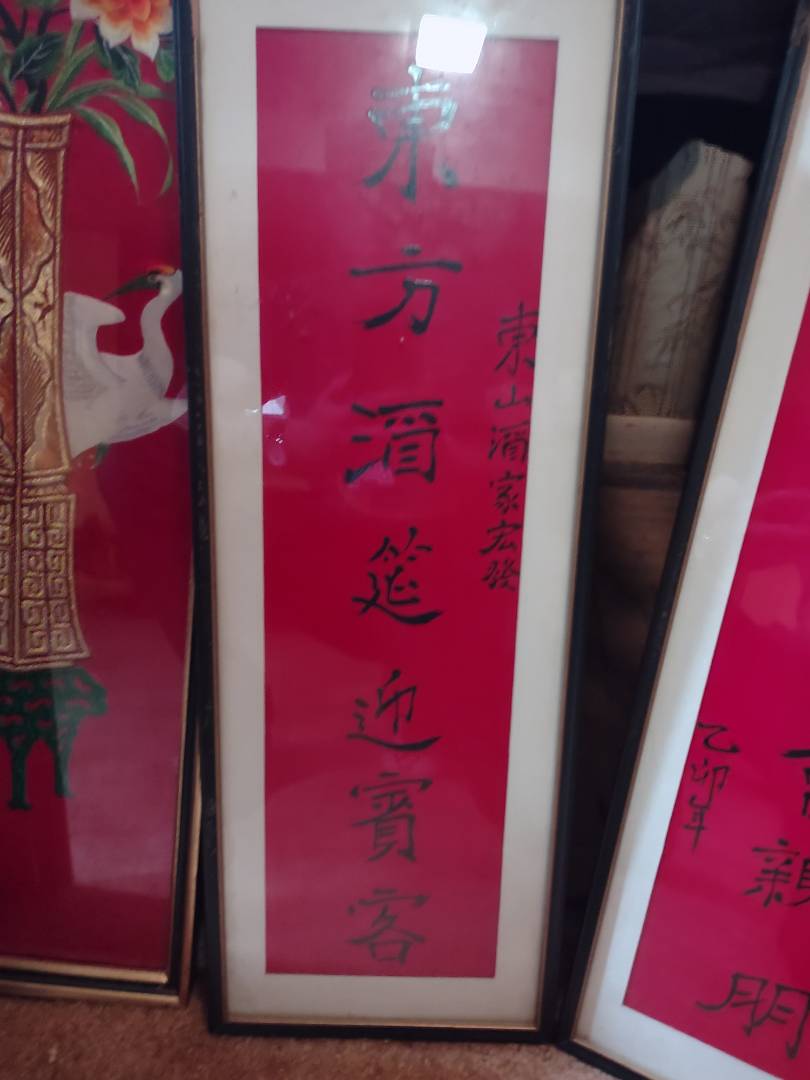 東山酒家宏發
東方酒筵迎賓客
親朋
乙卯年